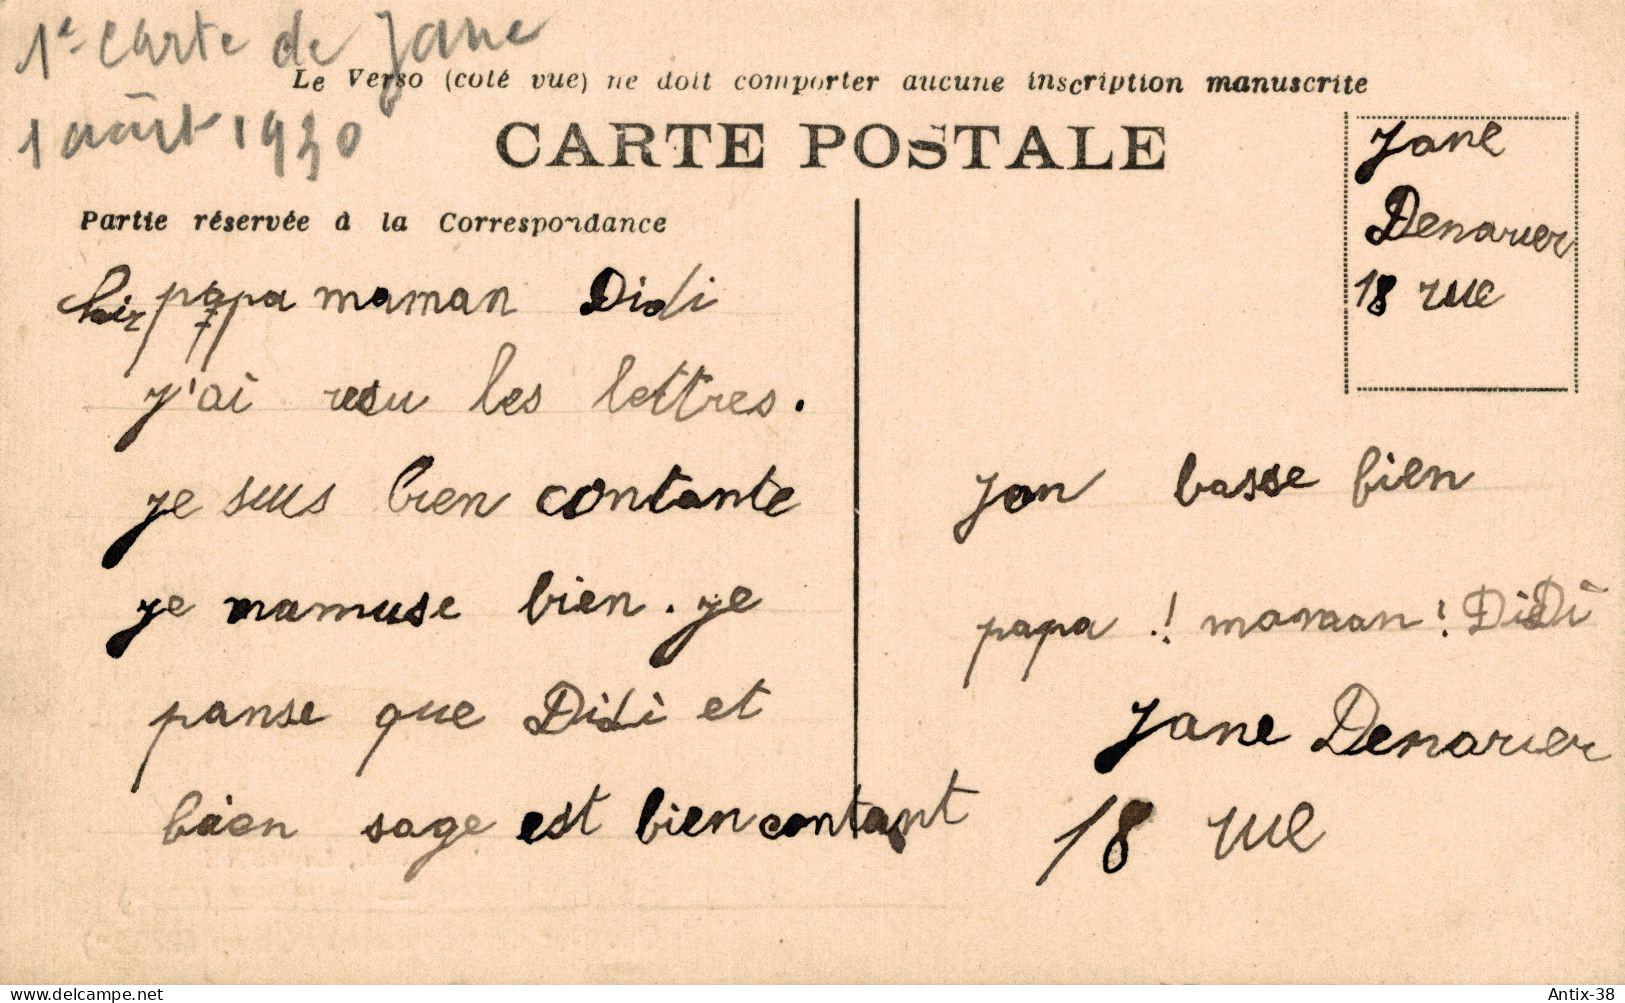 1e carte de Jane
Le Verso (coté vue) ne doit comporter aucune inscription manuscrite
1 août 1930
CARTE POSTALE
Jane
Denarier
18 rue
Partie réservée à la Correspondance
papa maman Didi
j'ai resu les lettres.
je suis bien contante
je mamuse bien. je
panse que Didi et
bien sage est bien contant
Jan basse bien
papa ! maman ! DiDi
Jane Denarier
18 rue
Antix-38